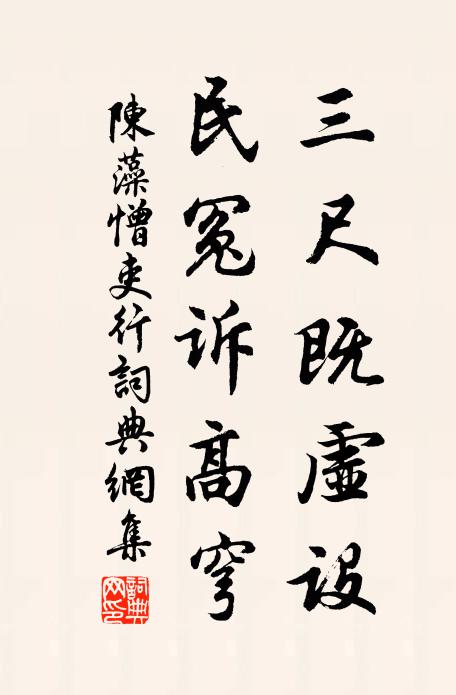 三尺既虛設
民冤訴高穹
陳藻憎吏行詞典網集
詞典網印